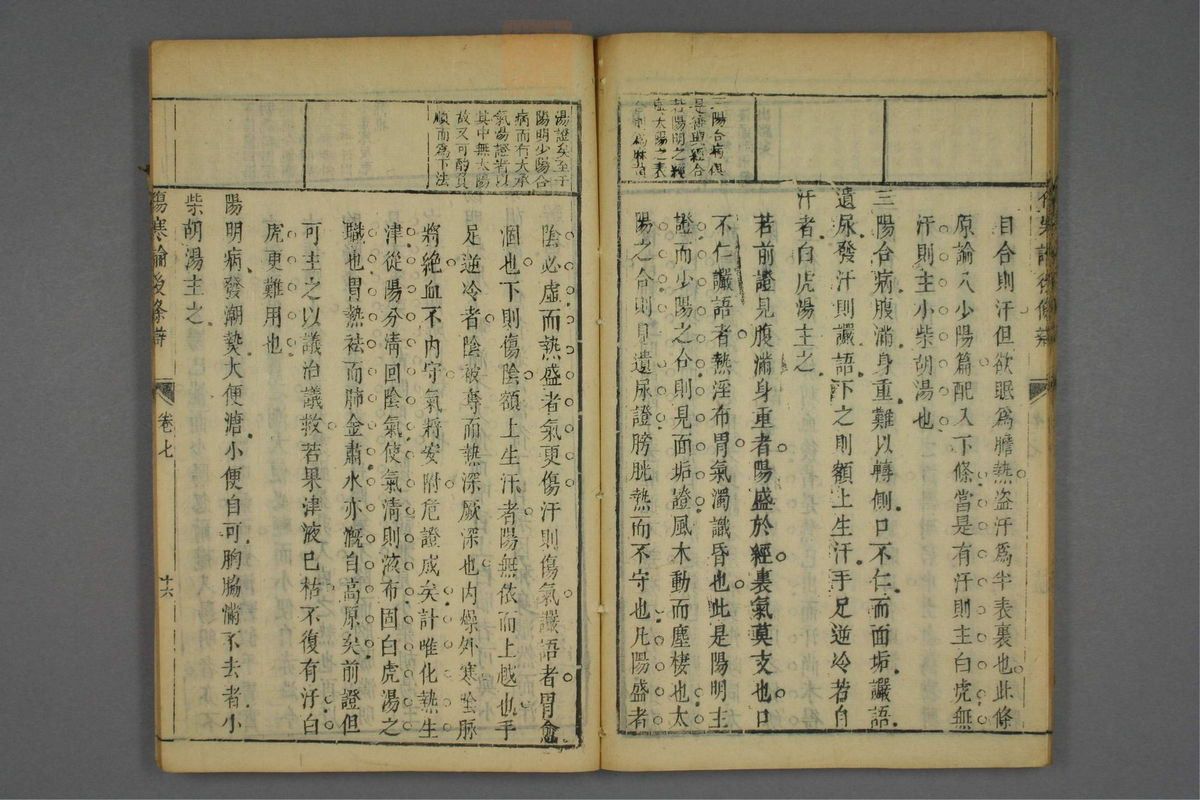 三陽合病俱
是傳與經合
若陽明之經
目合則汗但欲眠爲膽熱盜汗爲半表裏也此條
原論入少陽篇配入下條當是有汗則主白虎無
汗則主小柴胡湯也
三陽合病腹滿身重難以轉側口不仁而面垢譫語
遺尿發汗則譫語下之則額上生汗手足逆冷若自
汗者白虎湯主之
若前證見腹滿身重者陽盛於經裏氣莫支也口
不仁譫語者熱淫布胃氣濁識昏也此是陽明主
證而少陽之合則見面垢證風木動而塵棲也太
陽之合則見遺尿證膀胱熱而不守也凡陽盛者
湯證矣至于
陽明少陽合
病而有大承
氣湯證者以
其中無太陽
故又可酌負
順而爲下法
陰必虛而熱盛者氣更傷汗則傷氣譫語者胃愈
涸也下則傷陰額上生汗者陽無依而上越也手
足逆冷者陰被奪而熱深厥深也內燥外寒陰脈
將絕血不內守氣將安附危證成矣計唯化熱生
津從陽分清回陰氣使氣清則液布固白虎湯之
職也胃熱祛而肺金肅水亦溉自高原矣前證但
可主之以議治議救若果津液已枯不復有汗白
虎更難用也
陽明病發潮熱大便溏小便自可胸脇滿不去者小
柴胡湯主之
傷寒論後條辨
卷七
十六